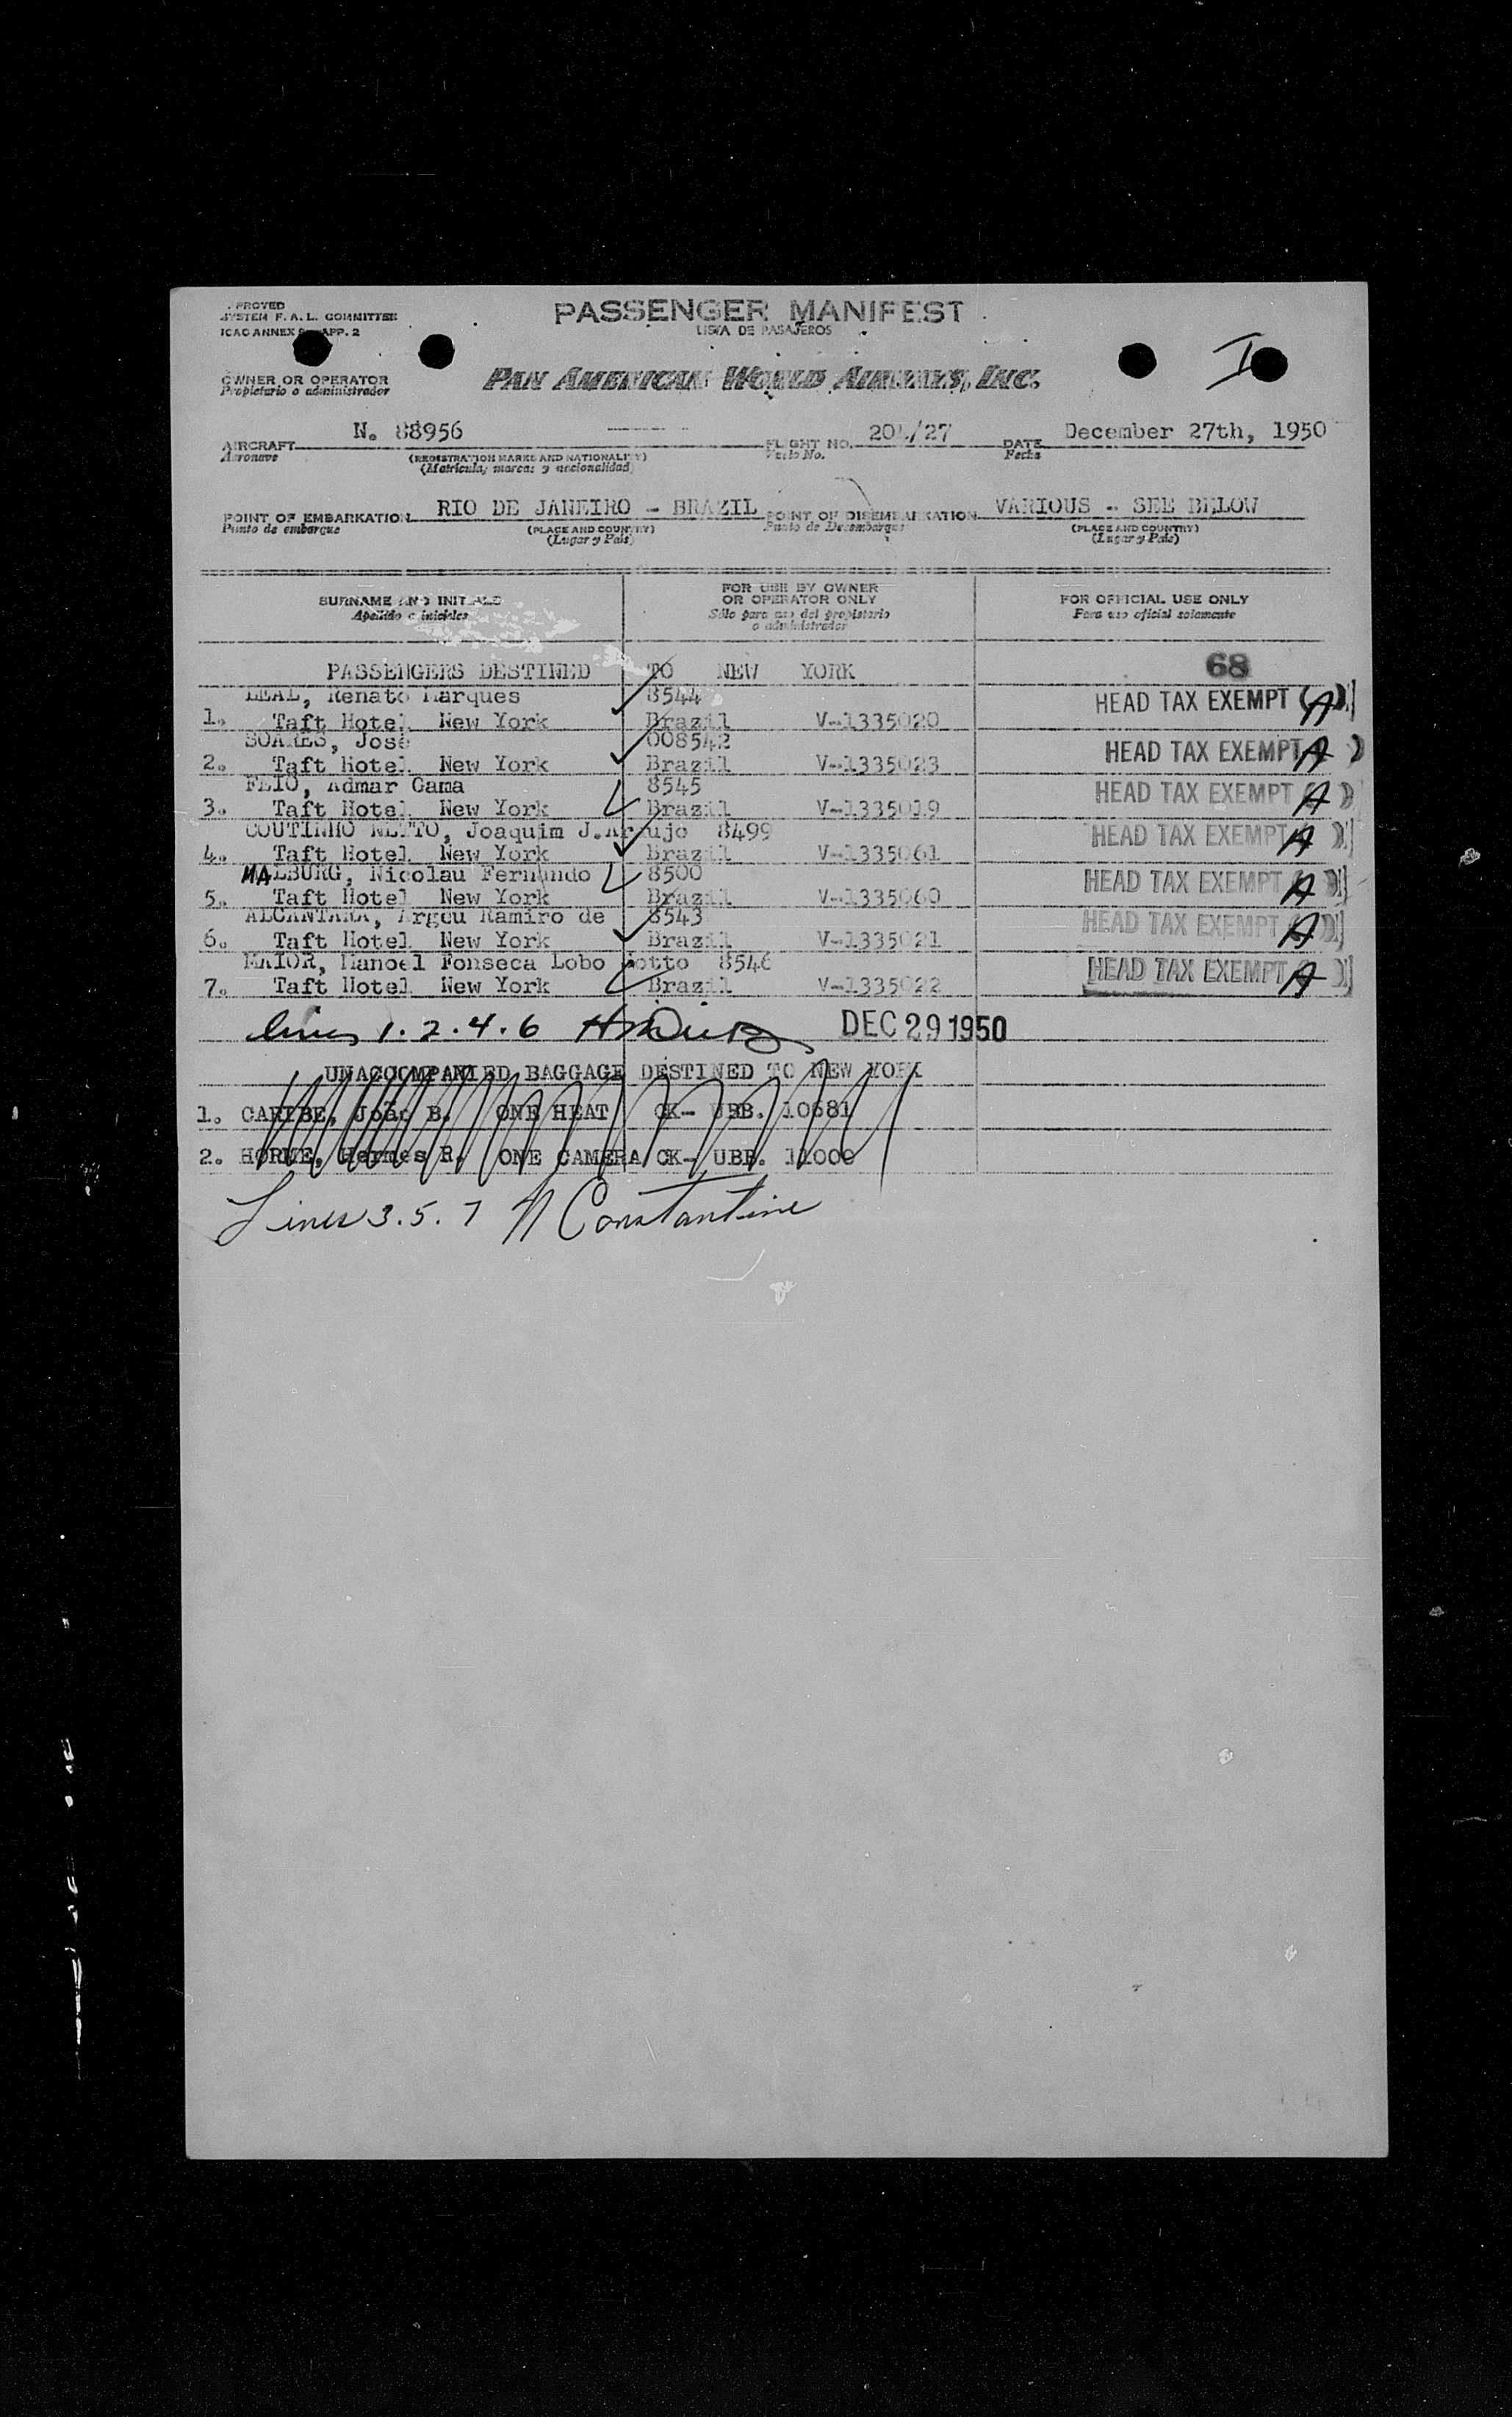 PROVED
SYSTEM F. A. L. COMMITTEE
ICAO ANNEX 9 APP. 2
PASSENGER MANIFEST
LISTA DE PASAJEROS
I
OWNER OR OPERATOR
Propietario o administrador
PAN AMERICAN WORLD AIRWAYS, INC.
AIRCRAFT N. 88956 FLIGHT NO. /27 DATE December 27th, 1950
Aeronave (REGISTRATION MARKS AND NATIONALITY) Vuelo No. Fecha
(Matricula, marcas y nacionalidad)
POINT OF EMBARKATION RIO DE JANEIRO - BRAZIL POINT OF DISEMBARKATION VARIOUS - SEE BELOW
Punto de embarque (PLACE AND COUNTRY) Punto de Desembarque (PLACE AND COUNTRY)
(Lugar y Pais) (Lugar y Pais)
SURNAME AND INITIALS FOR USE BY OWNER OR OPERATOR ONLY FOR OFFICIAL USE ONLY
Apellido e iniciales Sólo para uso del propietario o administrador Para uso oficial solamente
PASSENGERS DESTINED TO NEW YORK 68
LEAL, Renato Marques 8544 HEAD TAX EXEMPT (A)
1. Taft Hotel New York Brazil V-1335020
SOARES, José 008542 HEAD TAX EXEMPT A )
2. Taft Hotel New York Brazil V-1335023
FEIO, Admar Gama 8545 HEAD TAX EXEMPT (A )
3. Taft Hotel New York Brazil V-1335019
COUTINHO NETTO, Joaquim J.Araujo 8499 HEAD TAX EXEMPT A )
4. Taft Hotel New York Brazil V-1335061
MALBURG, Nicolau Fernando 8500 HEAD TAX EXEMPT (A )
5. Taft Hotel New York Brazil V-1335060
ALCANTARA, Argeu Ramiro de 8543 HEAD TAX EXEMPT (A )
6. Taft Hotel New York Brazil V-1335021
MAIOR, Manoel Fonseca Lobo Sotto 8546 HEAD TAX EXEMPT A )
7. Taft Hotel New York Brazil V-1335022
lines 1. 2. 4. 6 DEC 29 1950
UNACCOMPANIED BAGGAGE DESTINED TO NEW YORK
1. CARIBE, João B. ONE HEAT CK- UBB. 10681
2. Hermes R. ONE CAMERA CK- UBB. 11000
Lines 3. 5. 7 N Constantine